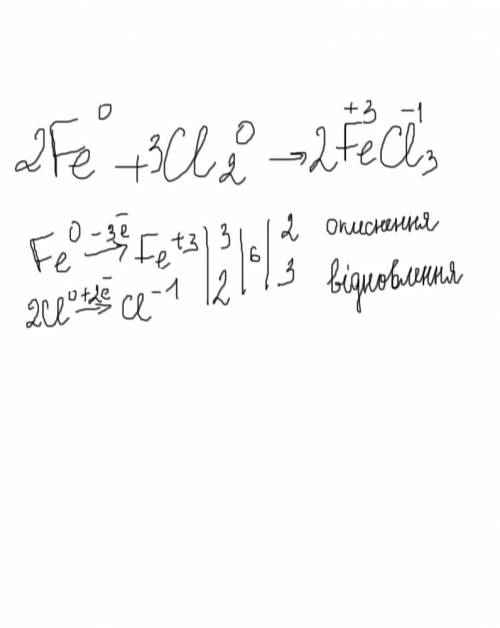 2Fe⁰ + 3Cl₂⁰ → 2Fe⁺³Cl₃⁻¹
Fe⁰ −3ē → Fe⁺³ | 3 | 6 | 2 окиснення
2Cl⁰ +2ē → Cl⁻¹ | 2 | | 3 відновлення